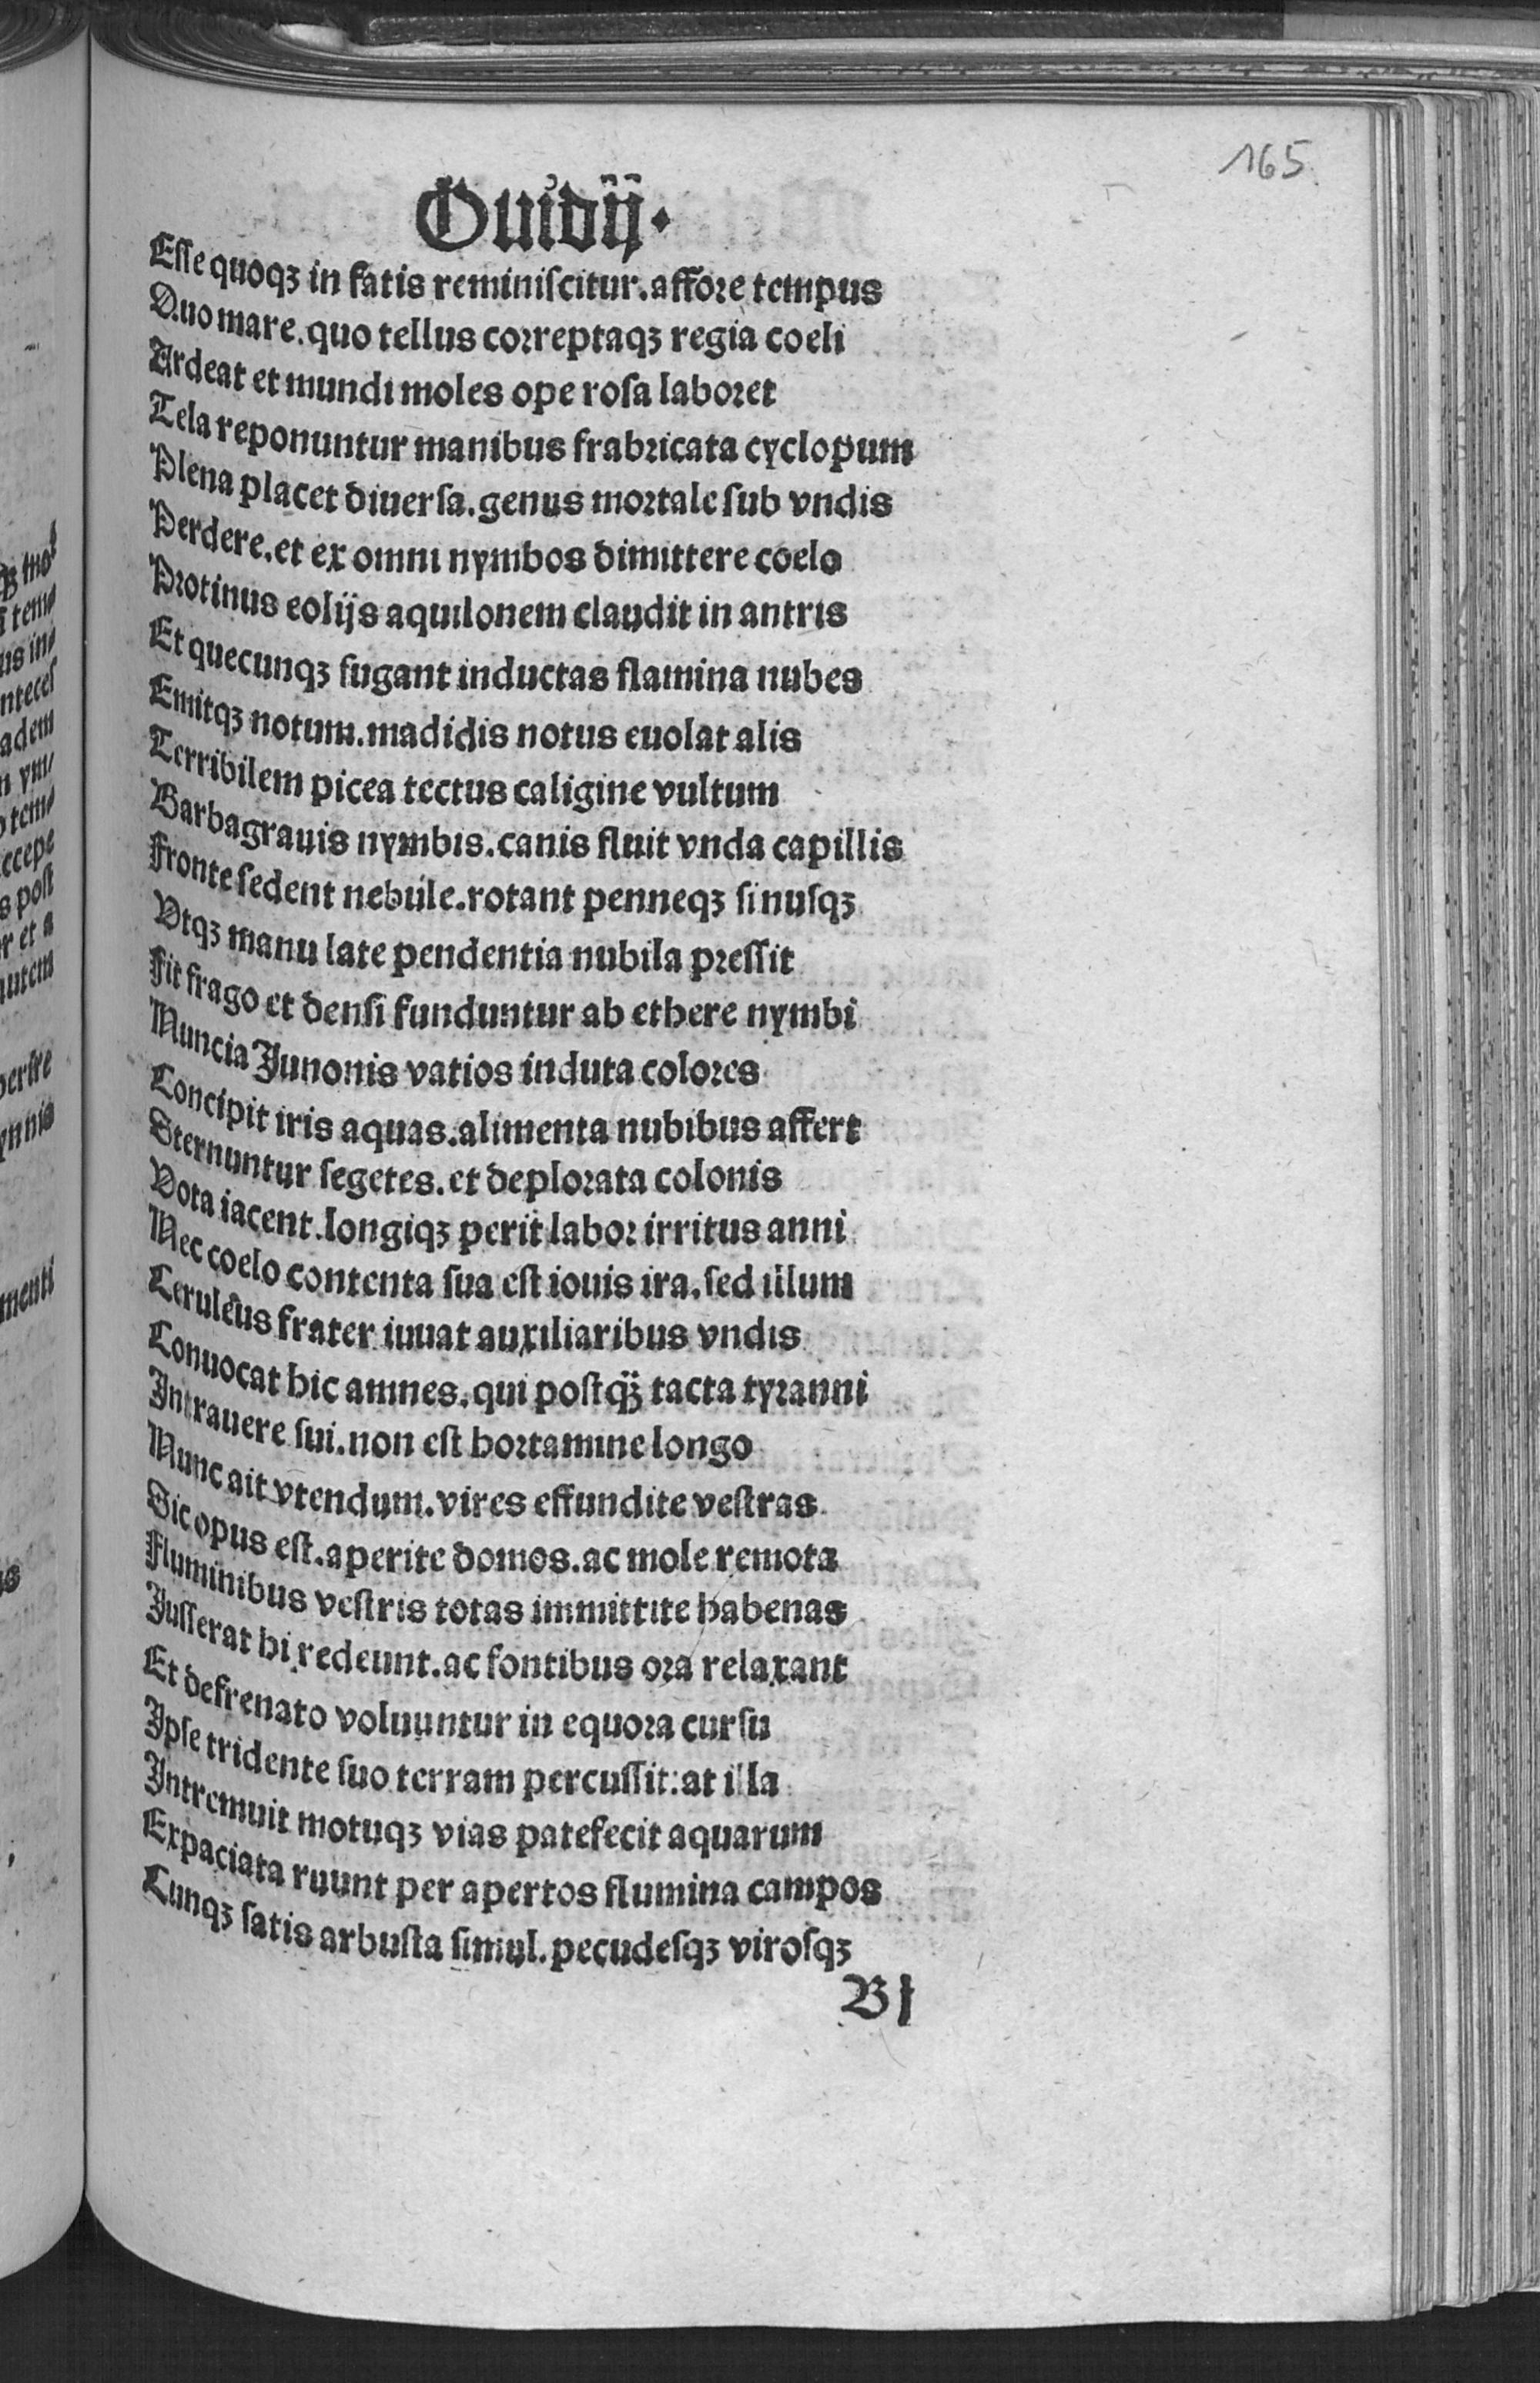 165
Ouidij.
Esse quoqʒ in fatis reminiscitur.affore tempus
Quo mare.quo tellus correptaqʒ regia coeli
Ardeat et mundi moles ope rosa laboret
Tela reponuntur manibus frabricata cyclopum
Plena placet diuersa.genus mortale sub vndis
Perdere.et ex omni nymbos dimittere coelo
Protinus eolijs aquilonem claudit in antris
Et quecunqʒ fugant inductas flamina nubes
Emitqʒ notum.madidis notus euolat alis
Terribilem picea tectus caligine vultum
Barba grauis nymbis.canis fluit vnda capillis
Fronte sedent nebule.rotant penneqʒ sinusqʒ
Vtqʒ manu late pendentia nubila pressit
Fit frago et densi funduntur ab ethere nymbi
Nuncia Junonis vatios induta colores
Concipit iris aquas.alimenta nubibus affert
Sternuntur segetes.et deplorata colonis
Vota iacent.longiqʒ perit labor irritus anni
Nec coelo contenta sua est iouis ira.sed illum
Ceruleus frater iuuat auxiliaribus vndis
Conuocat hic amnes.qui postqʒ̃ tacta tyranni
Intrauere sui.non est hortamine longo
Nunc ait vtendum.vires effundite vestras
Sic opus est.aperite domos.ac mole remota
Fluminibus vestris totas immittite habenas
Jusserat hi redeunt.ac fontibus ora relaxant
Et defrenato voluuntur in equora cursu
Ipse tridente suo terram percussit:at illa
Intremuit motuqʒ vias patefecit aquarum
Expaciata ruunt per apertos flumina campos
Cunqʒ satis arbusta simul.pecudesqʒ virosqʒ
Bj